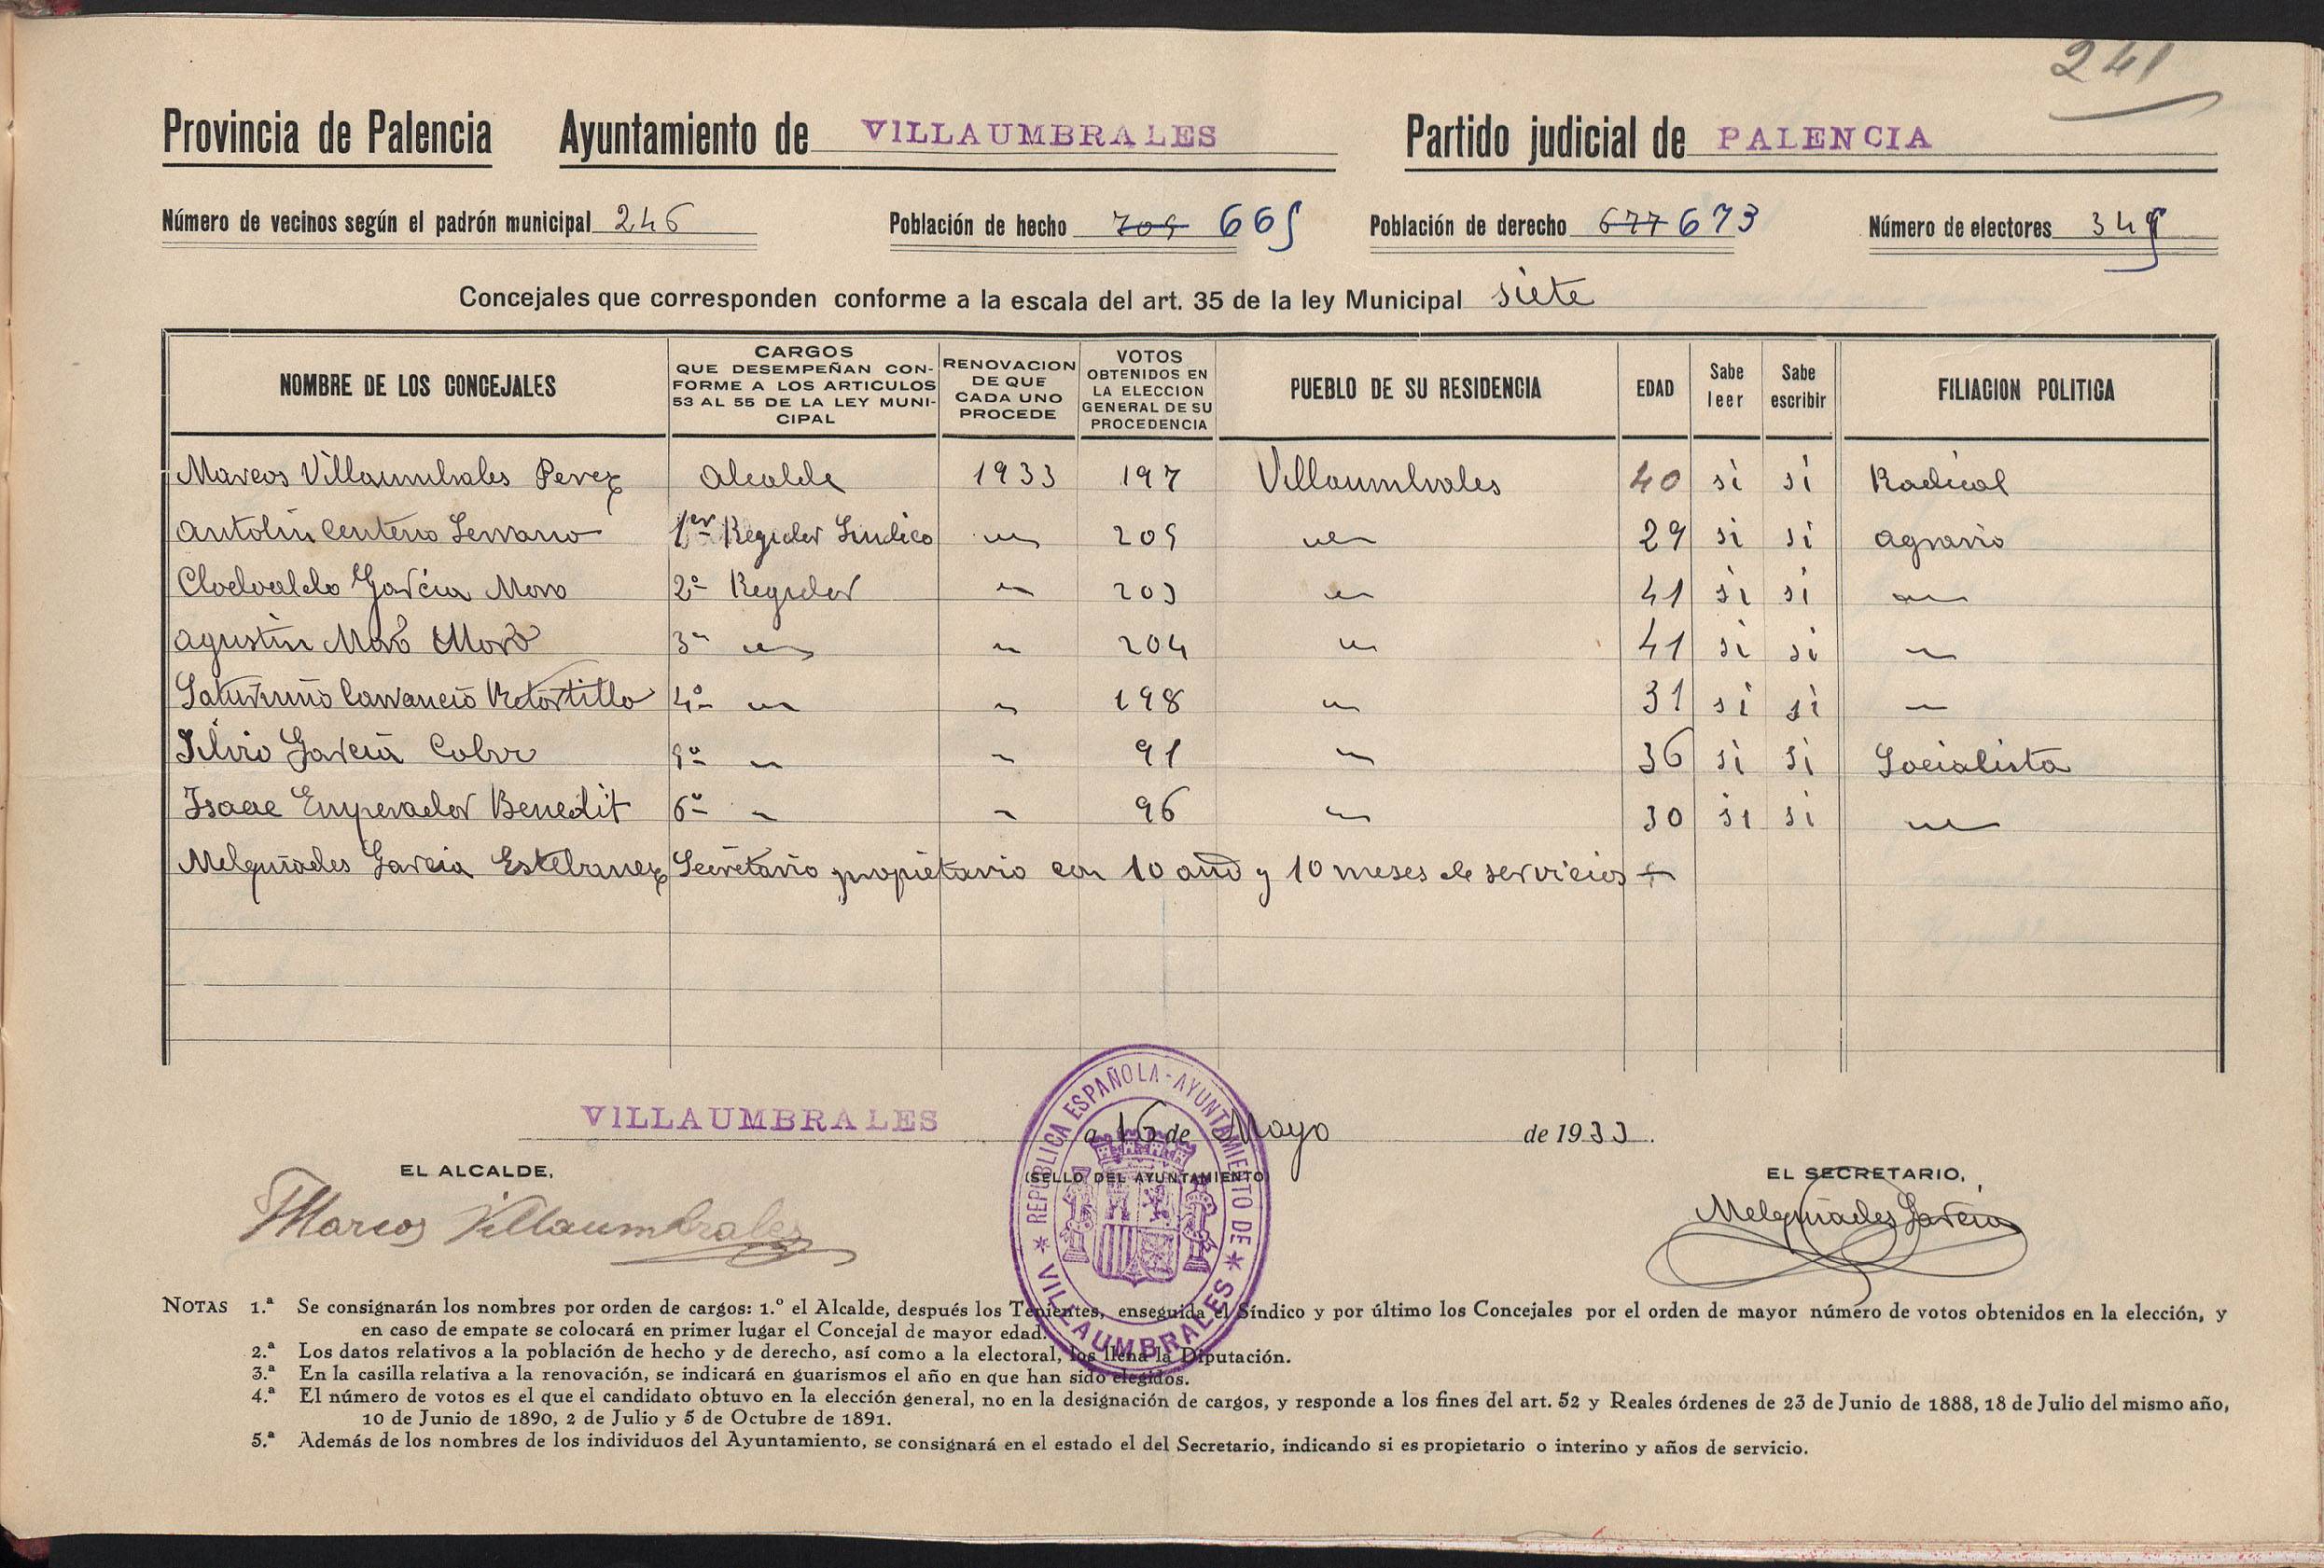 241
Provincia de Palencia Ayuntamiento de VILLAUMBRALES Partido judicial de PALENCIA
Número de vecinos según el padrón municipal 246 Población de hecho 705 665 Población de derecho 677 673 Número de electores 349
Concejales que corresponden conforme a la escala del art. 35 de la ley Municipal siete
NOMBRE DE LOS CONCEJALES
CARGOS
QUE DESEMPEÑAN CON-
FORME A LOS ARTICULOS
53 AL 55 DE LA LEY MUNI-
CIPAL
RENOVACION
DE QUE
CADA UNO
PROCEDE
VOTOS
OBTENIDOS EN
LA ELECCION
GENERAL DE SU
PROCEDENCIA
PUEBLO DE SU RESIDENCIA
EDAD
Sabe
leer
Sabe
escribir
FILIACION POLITICA
Marcos Villaumbrales Perez Alcalde 1933 197 Villaumbrales 40 si si Radical
Antolin Centeno Serrano 1er Regidor Sindico 205 29 si si Agrario
Clodoaldo Garcia Moro 2º Regidor 203 41 si si
Agustin Moro Moro 3º 204 41 si si
Saturnino Carrancio Retortillo 4º 198 31 si si
Silvio Garcia Cobo 5º 91 36 si si Socialista
Isaac Emperador Benedit 6º 96 30 si si
Melquiades Garcia Estebanez Secretario propietario con 10 años y 10 meses de servicios
VILLAUMBRALES a 16 de Mayo de 1933.
EL ALCALDE,
(SELLO DEL AYUNTAMIENTO)
EL SECRETARIO,
Marcos Villaumbrales
Melquiades Garcia
REPUBLICA ESPAÑOLA - AYUNTAMIENTO DE * VILLAUMBRALES *
NOTAS 1.ª Se consignarán los nombres por orden de cargos: 1.º el Alcalde, después los Tenientes, enseguida el Síndico y por último los Concejales por el orden de mayor número de votos obtenidos en la elección, y
en caso de empate se colocará en primer lugar el Concejal de mayor edad.
2.ª Los datos relativos a la población de hecho y de derecho, así como a la electoral, los llena la Diputación.
3.ª En la casilla relativa a la renovación, se indicará en guarismos el año en que han sido elegidos.
4.ª El número de votos es el que el candidato obtuvo en la elección general, no en la designación de cargos, y responde a los fines del art. 52 y Reales órdenes de 23 de Junio de 1888, 18 de Julio del mismo año,
10 de Junio de 1890, 2 de Julio y 5 de Octubre de 1891.
5.ª Además de los nombres de los individuos del Ayuntamiento, se consignará en el estado el del Secretario, indicando si es propietario o interino y años de servicio.